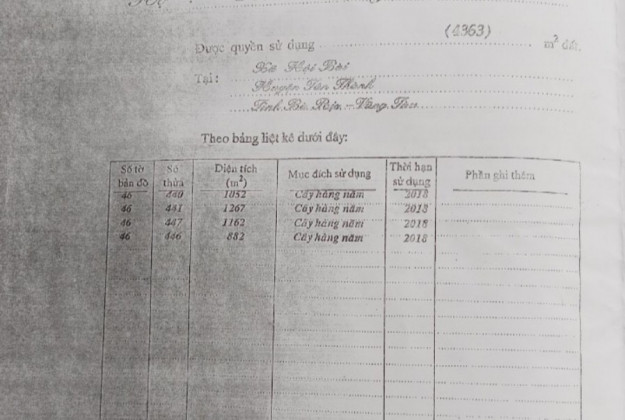 (4363)
Được quyền sử dụng m² đất.
Tại: Xã Hội Bài
Huyện Tân Thành
Tỉnh Bà Rịa - Vũng Tàu
Theo bảng liệt kê dưới đây:
Số tờ bản đồ Số thửa Diện tích (m²) Mục đích sử dụng Thời hạn sử dụng Phần ghi thêm
46 1052 Cây hàng năm 2018
46 481 1267 Cây hàng năm 2018
46 447 1162 Cây hàng năm 2018
46 446 882 Cây hàng năm 2018